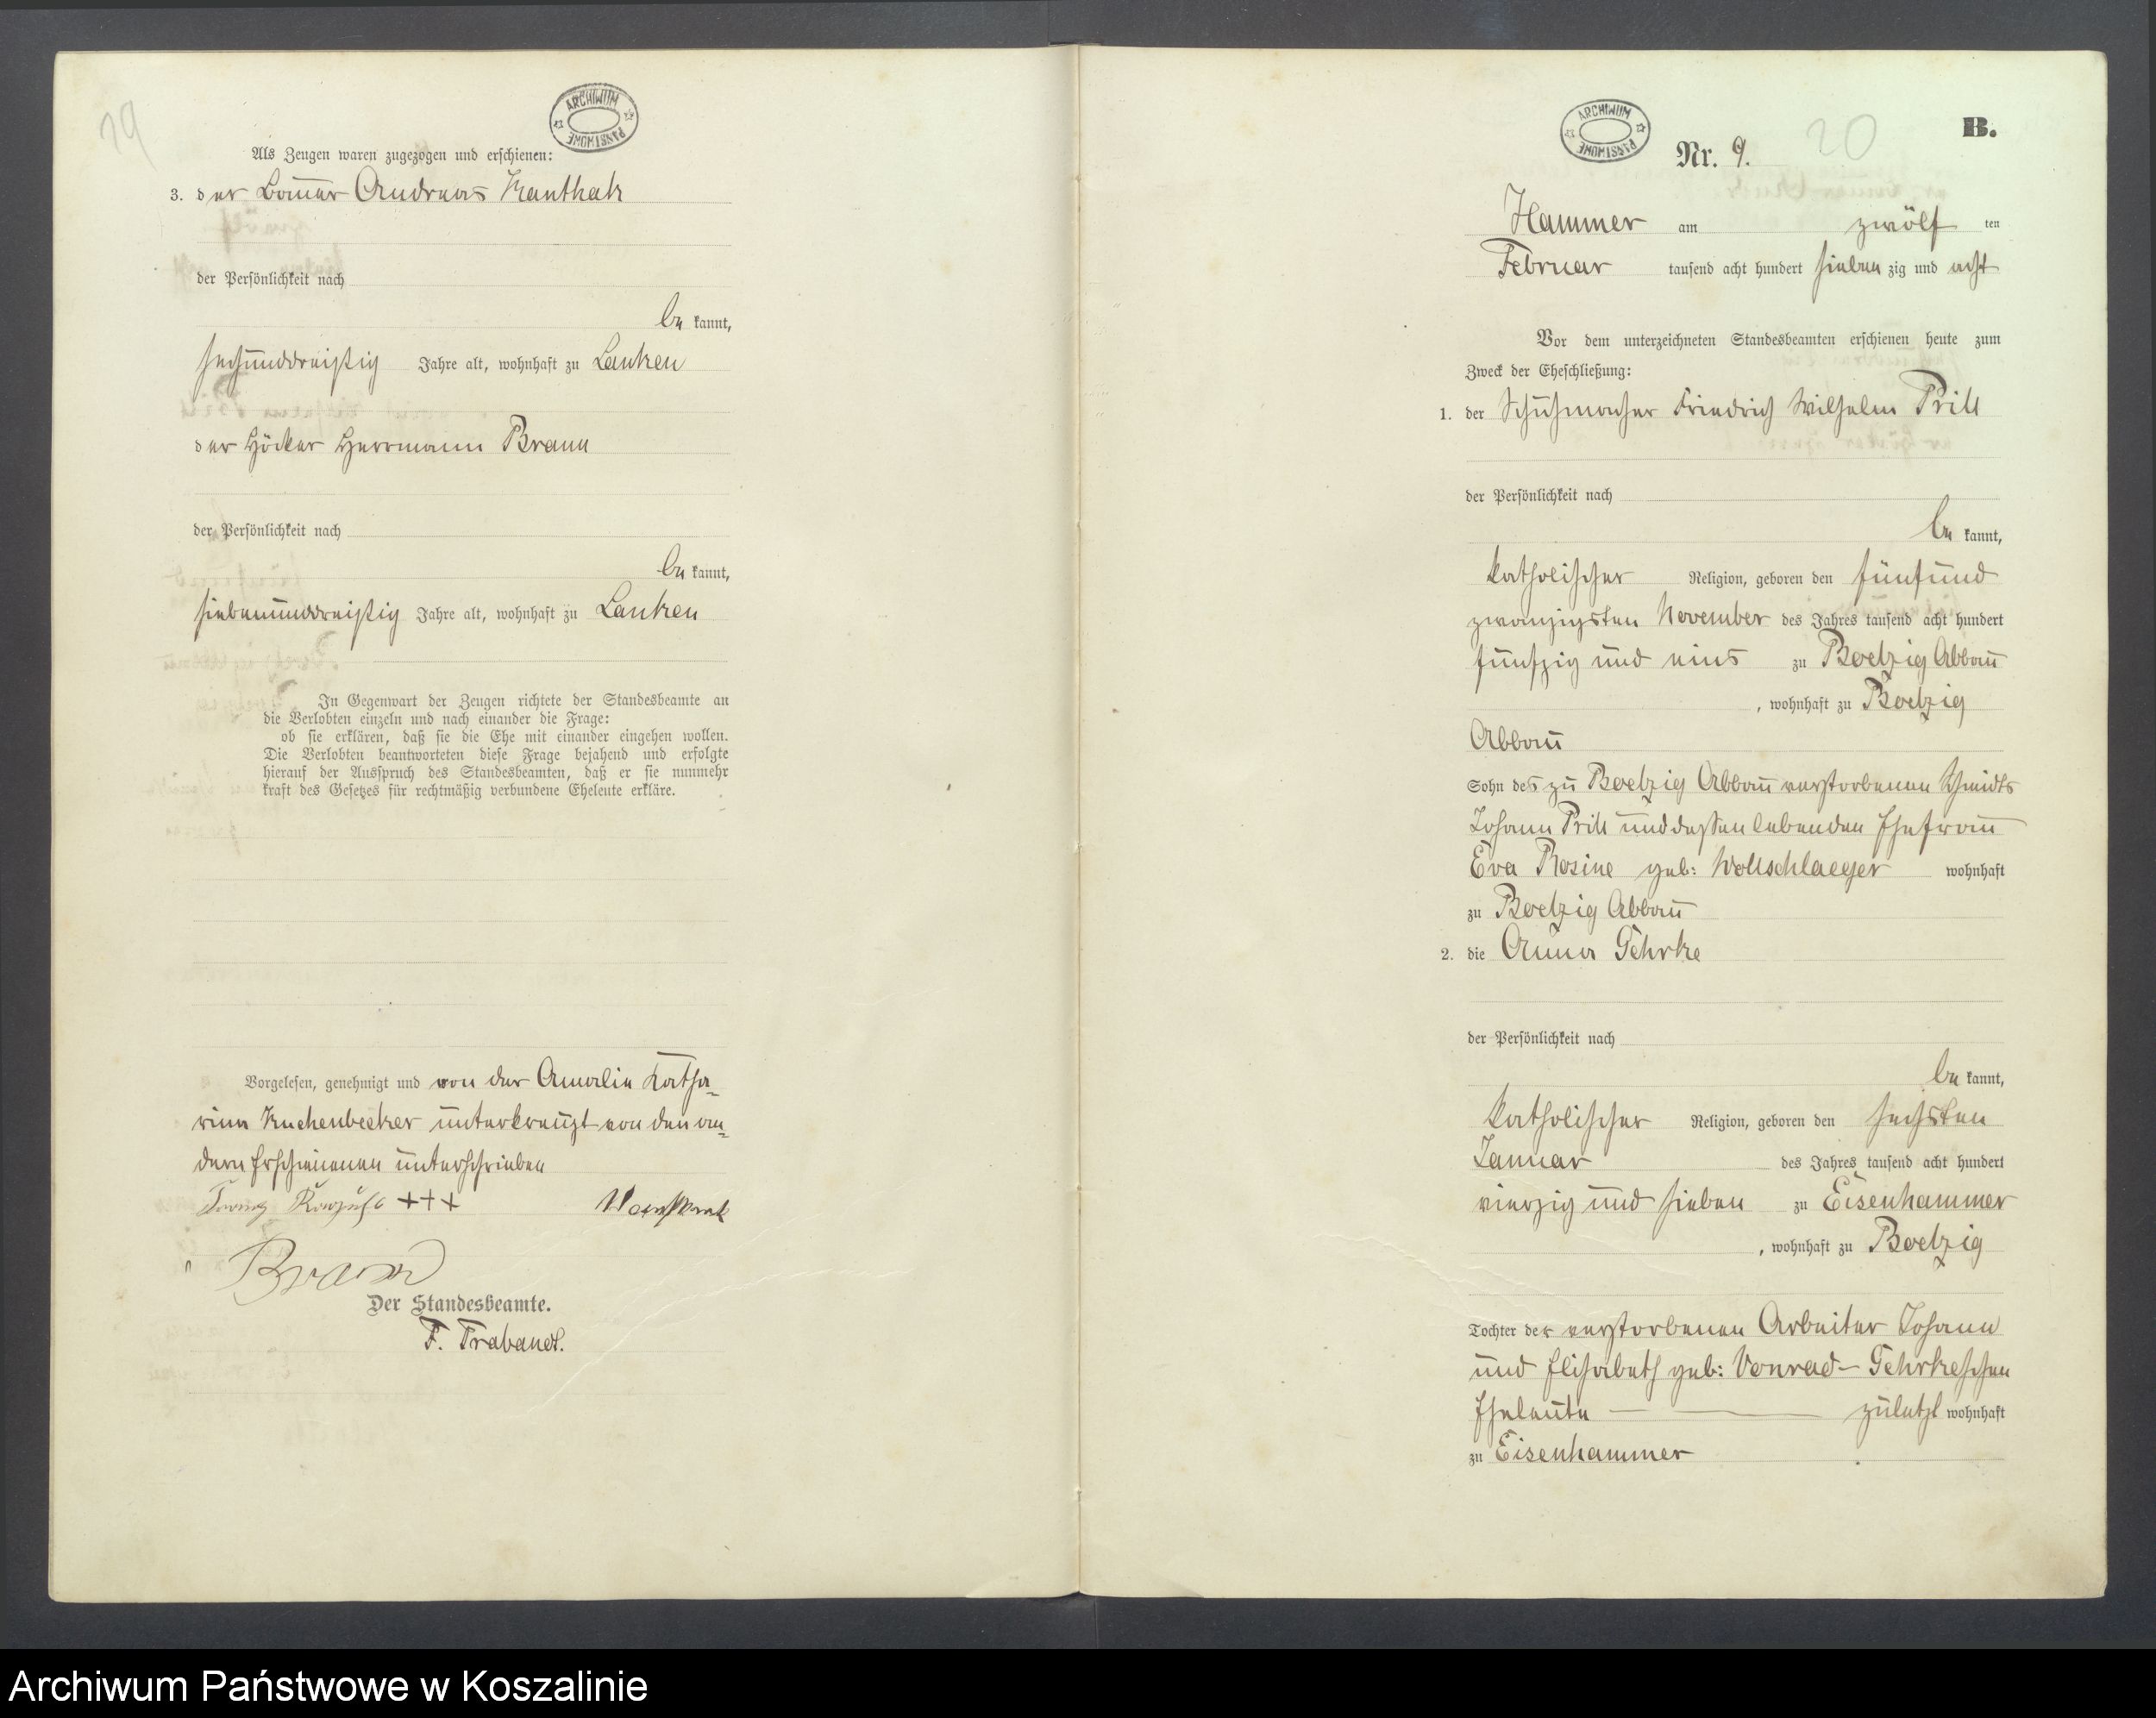 19
ARCHIWUM PAŃSTWOWE
Als Zeugen waren zugezogen und erschienen:
3. der Bauer Andreas Kanthak
der Persönlichkeit nach
be kannt,
sechsunddreißig Jahre alt, wohnhaft zu Lanken
der Höcker Herrmann Braun
der Persönlichkeit nach
be kannt,
siebenunddreißig Jahre alt, wohnhaft zu Lanken
In Gegenwart der Zeugen richtete der Standesbeamte an
die Verlobten einzeln und nach einander die Frage:
ob sie erklären, daß sie die Ehe mit einander eingehen wollen.
Die Verlobten beantworteten diese Frage bejahend und erfolgte
hierauf der Ausspruch des Standesbeamten, daß er sie nunmehr
kraft des Gesetzes für rechtmäßig verbundene Eheleute erkläre.
Vorgelesen, genehmigt und von der Amalie Katha=
rina Kuchenbecker unterkreuzt von den an=
dern Erschienenen unterschrieben
Franz +++
Braun
Der Standesbeamte.
F. Trabandt.
ARCHIWUM PAŃSTWOWE
20
B.
Nr. 9.
Hammer am zwölf ten
Februar tausend acht hundert sieben zig und acht
Vor dem unterzeichneten Standesbeamten erschienen heute zum
Zweck der Eheschließung:
1. der Schuhmacher Friedrich Wilhelm Prill
der Persönlichkeit nach
be kannt,
katholischer Religion, geboren den fünfund
zwanzigsten November des Jahres tausend acht hundert
fünfzig und eins zu Boetzig Abbau
, wohnhaft zu Boetzig
Abbau
Sohn des zu Boetzig Abbau verstorbenen Schmidts
Johann Prill und dessen lebenden Ehefrau
Eva Rosine geb: Wollschlaeger wohnhaft
zu Boetzig Abbau
2. die Anna Gehrke
der Persönlichkeit nach
be kannt,
katholischer Religion, geboren den sechsten
Januar des Jahres tausend acht hundert
vierzig und sieben zu Eisenhammer
, wohnhaft zu Boetzig
Tochter der verstorbenen Arbeiter Johann
und Elisabeth geb: Vonrad - Gehrkeschen
Eheleute zuletzt wohnhaft
zu Eisenhammer
Archiwum Państwowe w Koszalinie